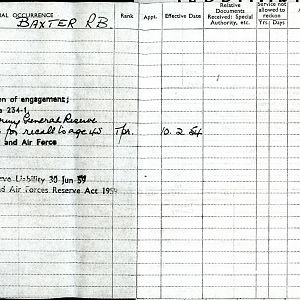 AL OCCURRENCE
BAXTER R.B.
Rank
Appt.
Effective Date
Relative
Documents
Received: Special
Authority, etc.
Service not
allowed to
reckon
Yrs. Days
en of engagement;
234-1,
Army General Reserve
for recall to age 45 Tpr. 10.2.54
and Air Force
rve Liability 30 Jun 59
nd Air Forces Reserve Act 1950